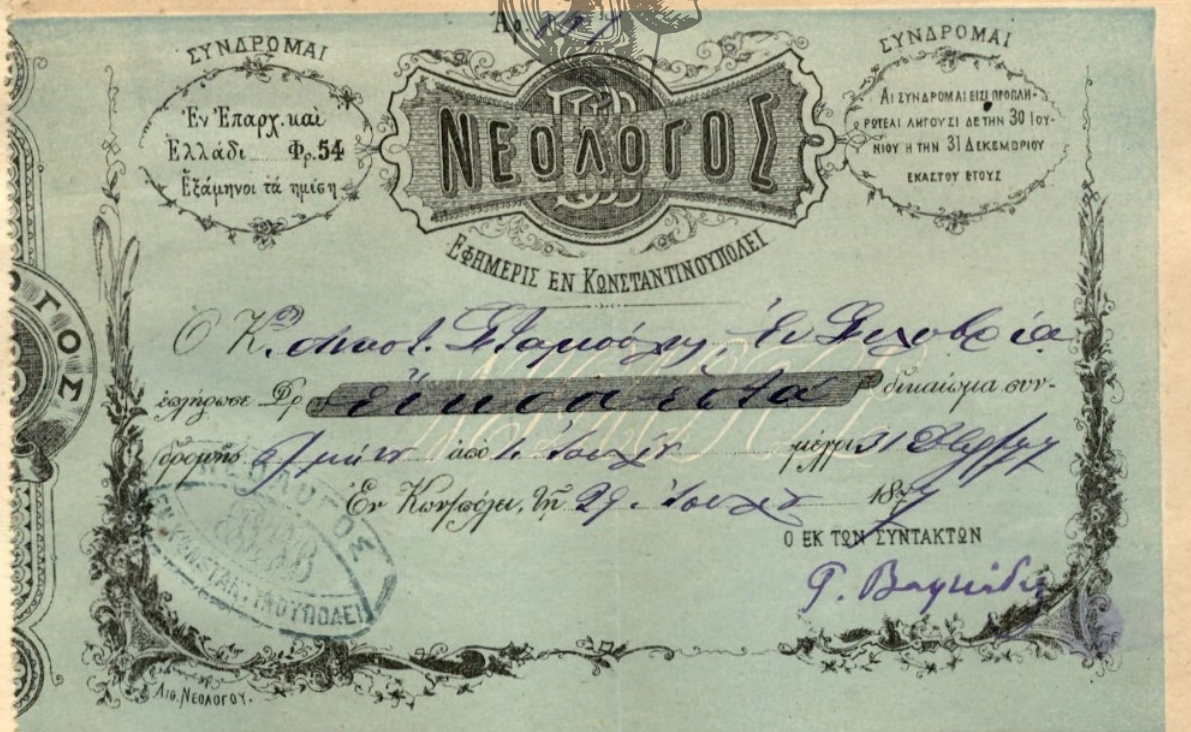 Αρ.
ΣΥΝΔΡΟΜΑΙ
Ἐν Ἐπαρχ. καὶ
Ἑλλάδι Φρ. 54
Ἑξάμηνοι τὰ ημίση
ΝΕΟΛΟΓΟΣ
ΕΦΗΜΕΡΙΣ ΕΝ ΚΩΝΣΤΑΝΤΙΝΟΥΠΟΛΕΙ
ΣΥΝΔΡΟΜΑΙ
ΑΙ ΣΥΝΔΡΟΜΑΙ ΕΙΣΙ ΠΡΟΠΛΗ-
ΡΩΤΕΑΙ ΛΗΓΟΥΣΙ ΔΕ ΤΗΝ 30 ΙΟΥ-
ΝΙΟΥ Η ΤΗΝ 31 ΔΕΚΕΜΒΡΙΟΥ
ΕΚΑΣΤΟΥ ΕΤΟΥΣ
Ὁ Κ. Αναστ. Σταμούλης, ἐν Σηλυβρία
ἐπλήρωσε Φρ εἴκοσι ἑπτὰ δικαίωμα συν-
δρομῆς ἀπὸ 1 μέχρι 31
Ἐν Κων/πόλει, τῇ 29 1877
Ο ΕΚ ΤΩΝ ΣΥΝΤΑΚΤΩΝ
Γ. Βαφειάδης
ΝΕΟΛΟΓΟΣ
ΕΝ ΚΩΝΣΤΑΝΤΙΝΟΥΠΟΛΕΙ
Λιθ. ΝΕΟΛΟΓΟΥ.
ΓΟΣ